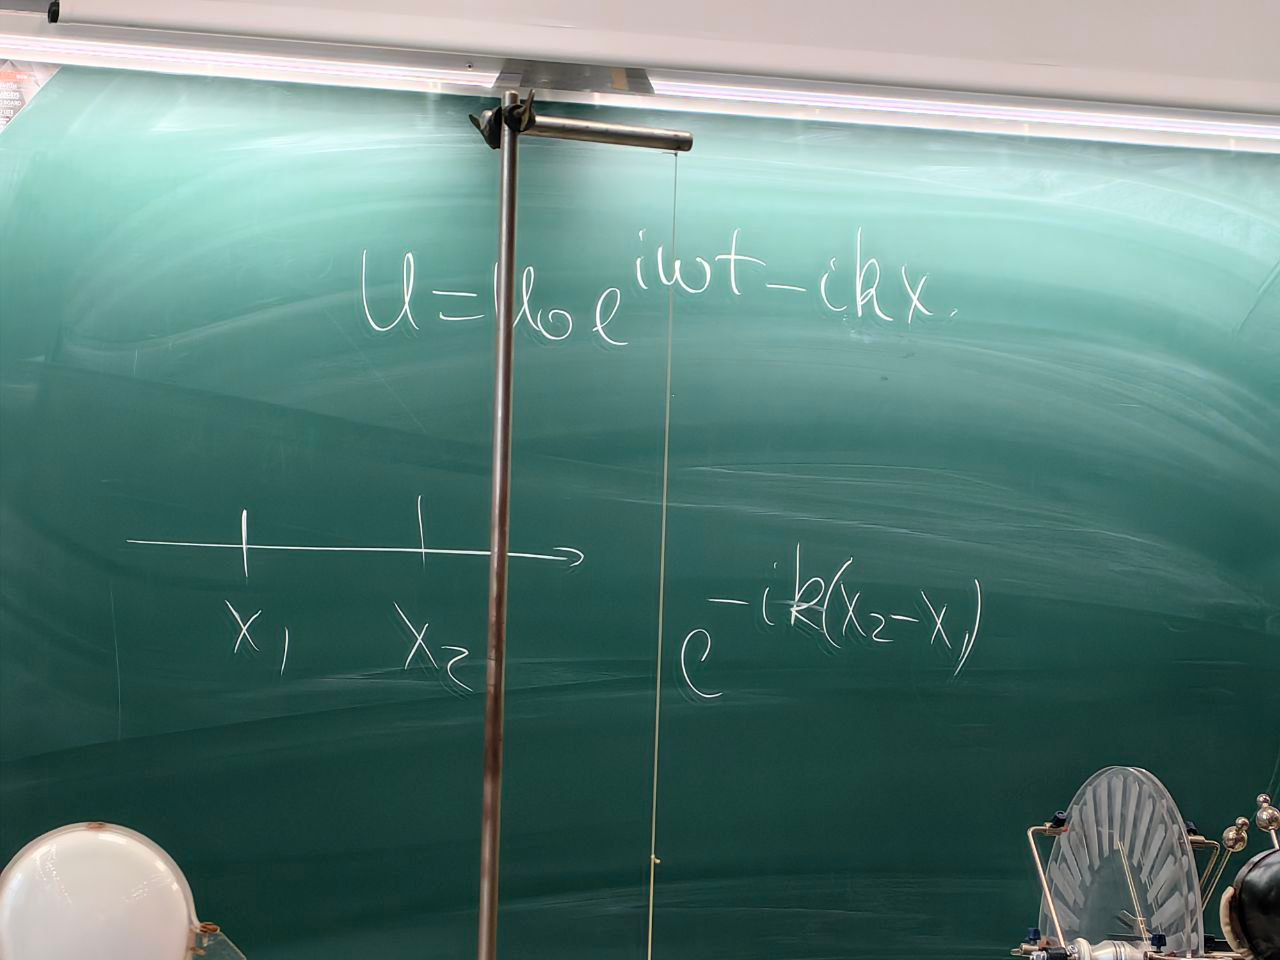 U = u₀ e^{iωt - ikx}
x₁ x₂
e^{-ik(x₂ - x₁)}